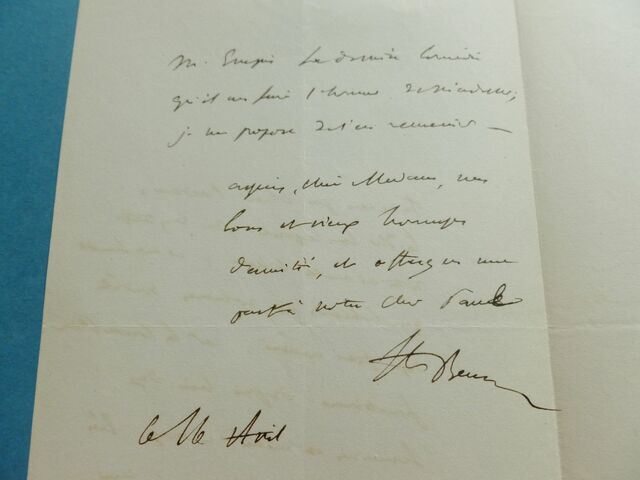 M. Empis la dernière comédie
qu'il me fait l'honneur de m'adresser;
je me propose de l'en remercier —
agréez, chère Madame, mes
bons et vieux hommages
d'amitié, et offrez en une
part à notre cher Paul
Ste Beuve
Ce 16 Avril